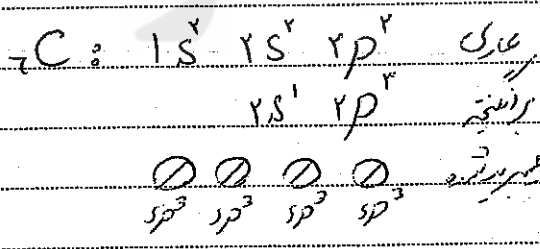 ₆C : 1s² 2s² 2p² عادی
2s¹ 2p³ برانگیخته
هیبرید شده
sp³ sp³ sp³ sp³